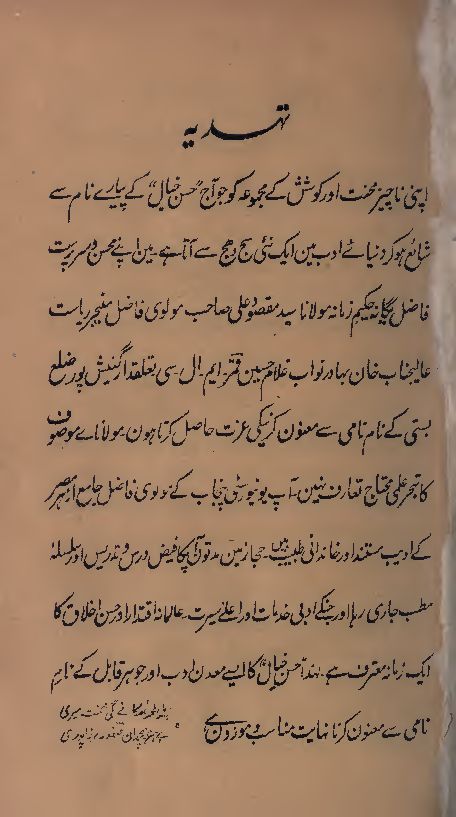 تہدیہ
اپنی ناچیز محنت اور کوشش کے مجموعہ کو جو آج "حسن خیال" کے پیارے نام سے
شائع ہو کر دنیائے ادب مین ایک نئی سج دھج سے آتا ہے۔ مین اپنے محسن و سرپرست
فاضل یگانہ حکیم زمانہ مولانا سید مقصود علی صاحب مولوی فاضل منیجر ریاست
عالیجناب خان بہادر نواب غلام حسین قمر ایم۔ال۔سی تعلقدار گنیش پور ضلع
بستی کے نام نامی سے معنون کرنیکی عزت حاصل کرتا ہون۔ مولانائے موصوف
کا تبحر علمی محتاج تعارف نہین۔ آپ یونیورسٹی پنجاب کے مولوی فاضل جامع ازہر مصر
کے ادیب مستند اور خاندانی طبیب ہین۔ حجاز مین مدتون آپکا فیض درس و تدریس اور سلسلہ
مطب جاری رہا اور جنکے ادبی خدمات اور اعلے سیرت۔ عالمانہ اقتدار اور حسن اخلاق کا
ایک زمانہ معترف ہے۔ لہذا "حسن خیال" کا ایسے معدن ادب اور جوہر قابل کے نام
نامی سے معنون کرنا نہایت مناسب و موزون ہے
محنت میری